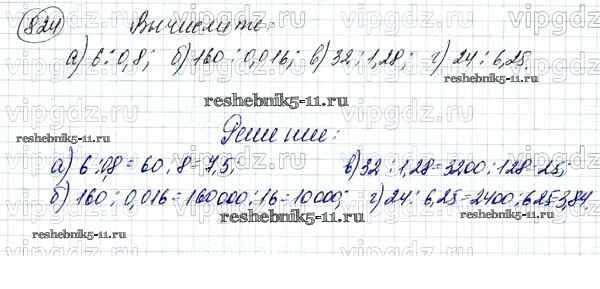 824 Вычислите:
а) 6 : 0,8; б) 160 : 0,016; в) 32 : 1,28; г) 24 : 6,25.
reshebnik5-11.ru
reshebnik5-11.ru
Решение:
reshebnik5-11.ru
а) 6 : 0,8 = 60 : 8 = 7,5; в) 32 : 1,28 = 3200 : 128 = 25;
б) 160 : 0,016 = 160000 : 16 = 10000; г) 24 : 6,25 = 2400 : 625 = 3,84.
reshebnik5-11.ru
reshebnik5-11.ru
vipgdz.ru